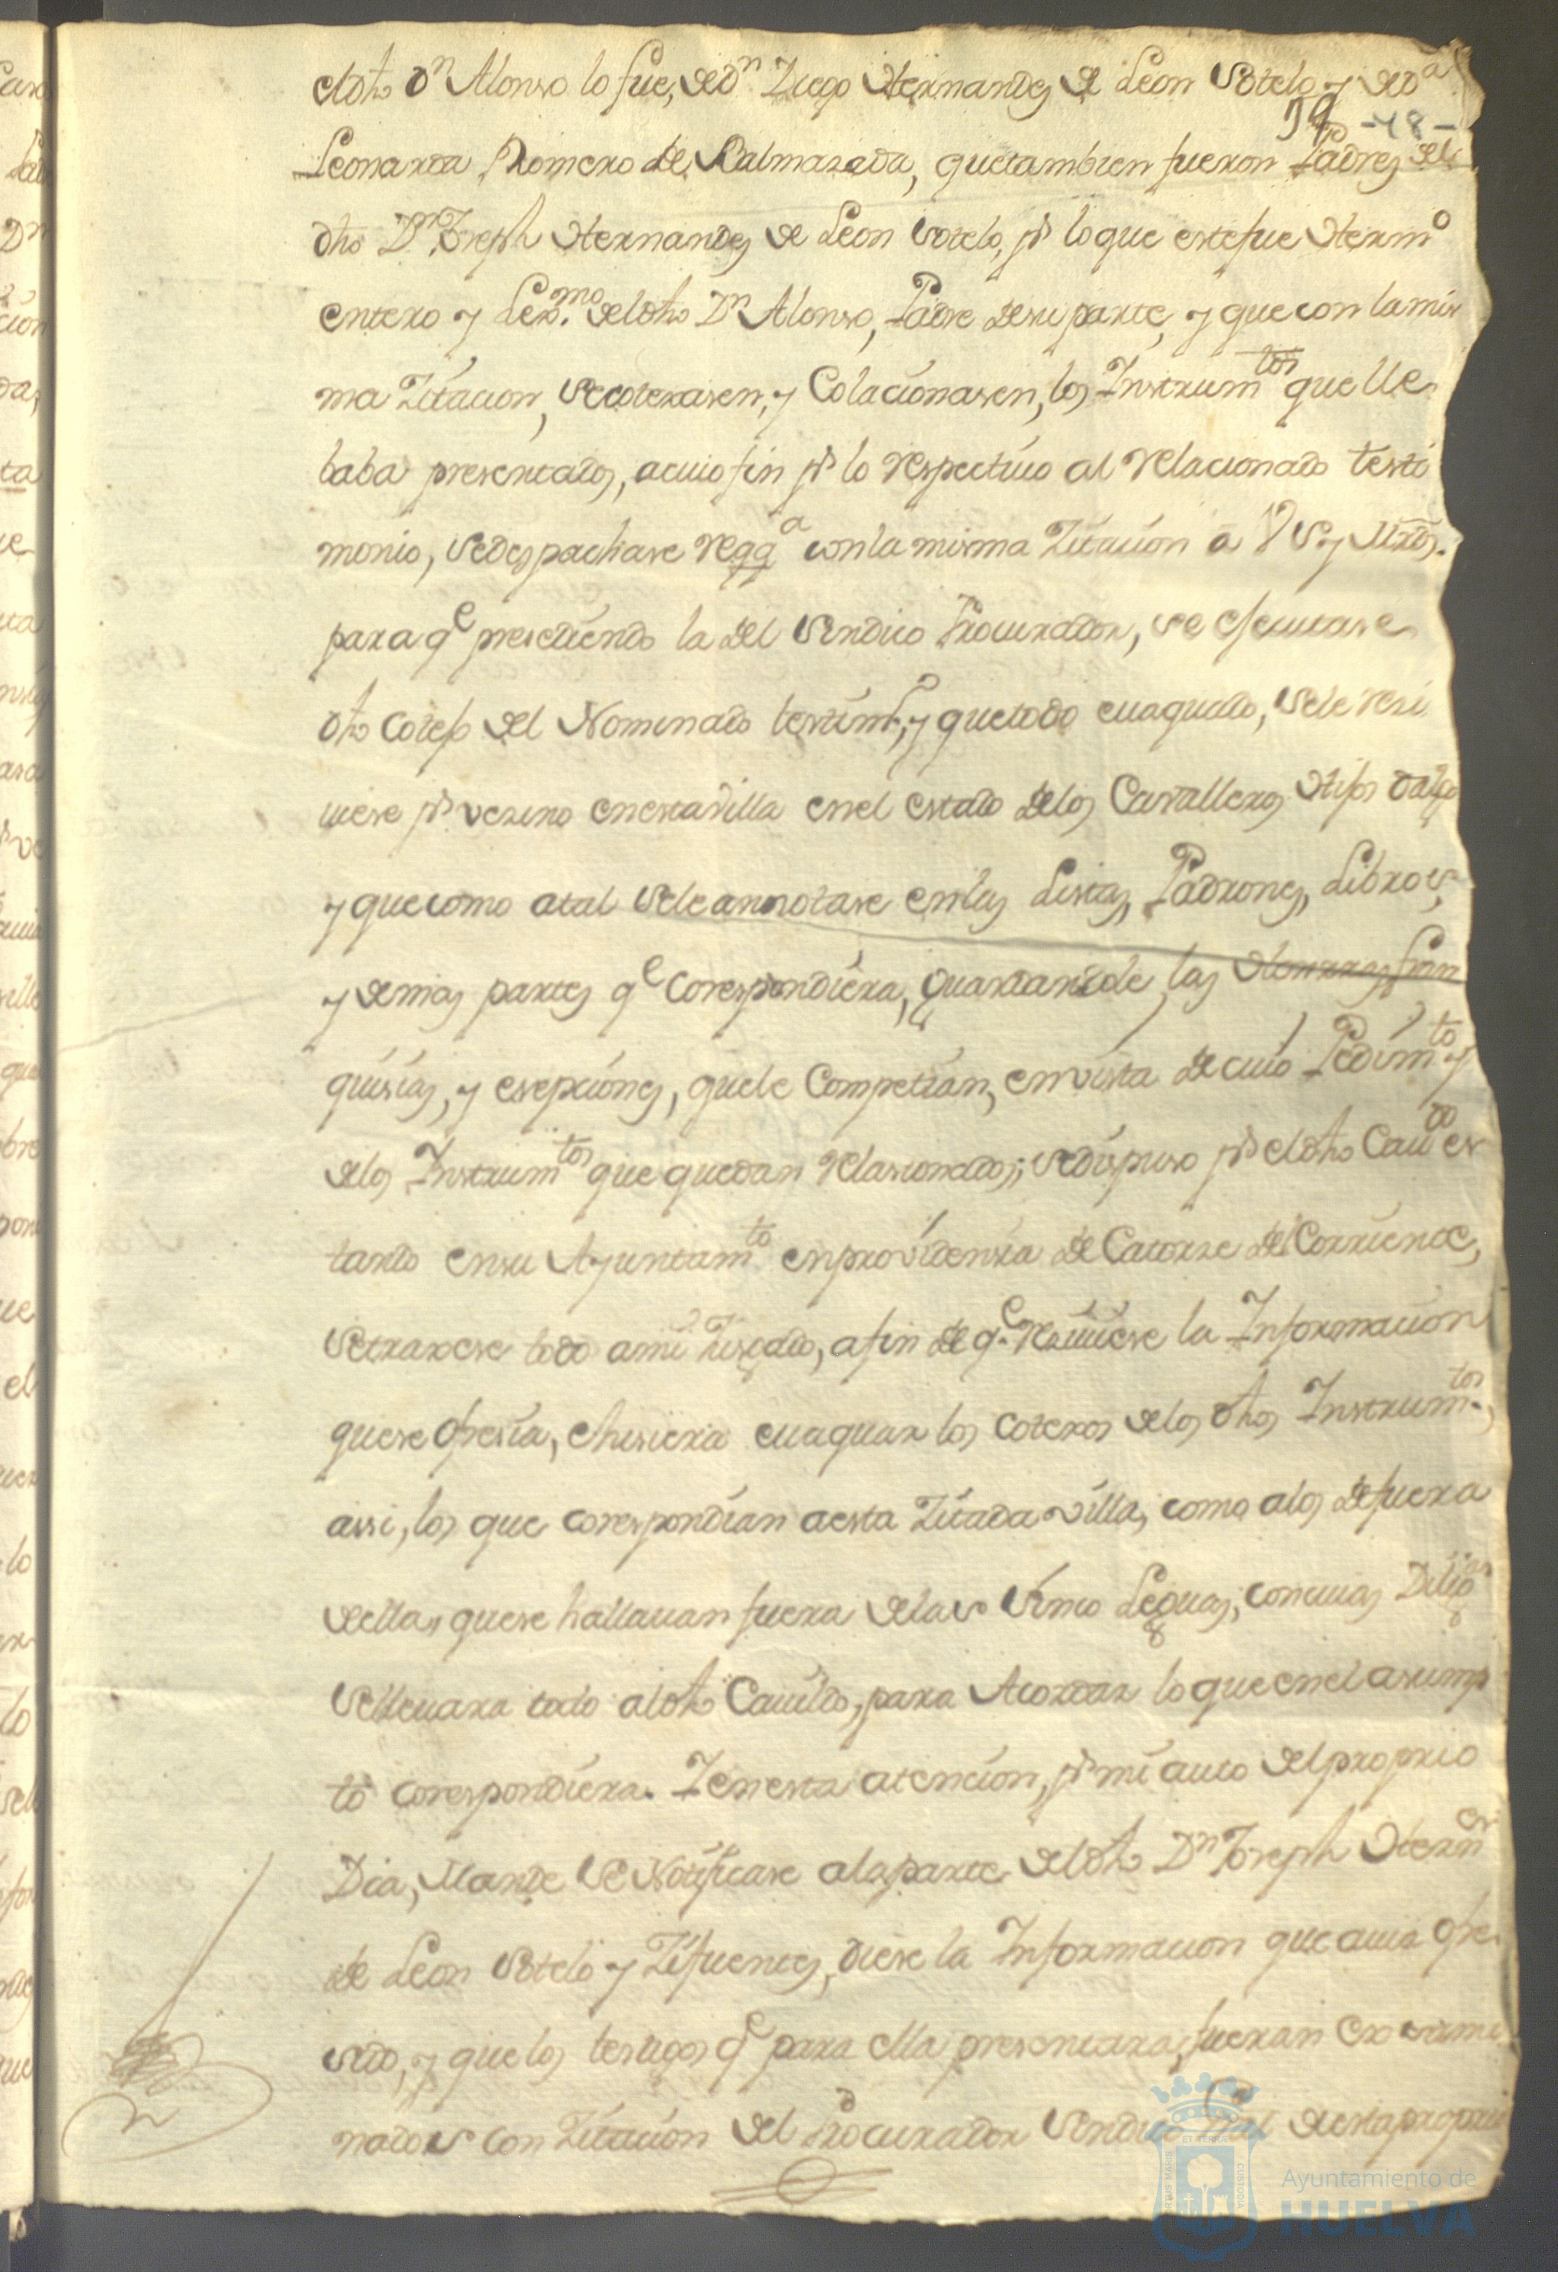 eldho Dn Alonso lo fue, de dn Diego Hernandez de Leon Sotelo, y de da
-48-
Leonarda Romero de Balmaseda, que tambien fueron Padres del
dho Dn Joseph Hernandez de Leon Sotelo, pr lo que este fue Hermo
entero y Lexmo. del dho Dn Alonso, Padre de su parte, y que con la mis
ma Zitacion, se cotexasen, y Colacionasen, los Instrumtos que lle
baba presentados, a cuio fin pr lo respectiuo al relacionado testi
monio, se despachase reqqa con la misma Zitacion a VS y Mrds.
para qe presediendo la del Sindico Procurador, se efecutase
dho cotejo del Nominado testimo, y que todo euaquado, se le resi
uiese pr vezino en esta villa en el estado de los Cavalleros Hijos dalgo
y que como a tal se le annotase en las Listas, Padrones, Libros,
y demas partes qe Corespondiera, guardandole las Honrras, fran
quisias, y esepciones, que le Competian, en vista de cuio Pedimto y
de los Instrumtos que quedan relasionados; se dispuso pr el dho Caudo es
tando en su Ayuntamto en providensia de Catorze del Corriente,
se traxese todo a mi Jusgado, a fin de qe. resiuiese la Informacion
que se ofresia, e hisiera euaquar los cotexos de los dhos Instrumtos.,
assi, los que corespondian a esta Zitada villa, como a los de fuera
de ella, que se hallauan fuera de las Sinco Leguas, con cuias Diligas
se lleuara todo al dho Cauildo, para Acordar lo que en el asump
to corespondiera. Y en esta atencion, pr mi auto del proprio
Dia, Mande se Notificase a la parte del dho Dn Joseph Hernes
de Leon Sotelo y Zifuentes, diese la Informacion que auia ofre
sido, y que los testigos qe para ella presentara, fueran Exsami
nados con Zitacion del Procurador Sindico Gral de esta propria
Ayuntamiento de
HUELVA